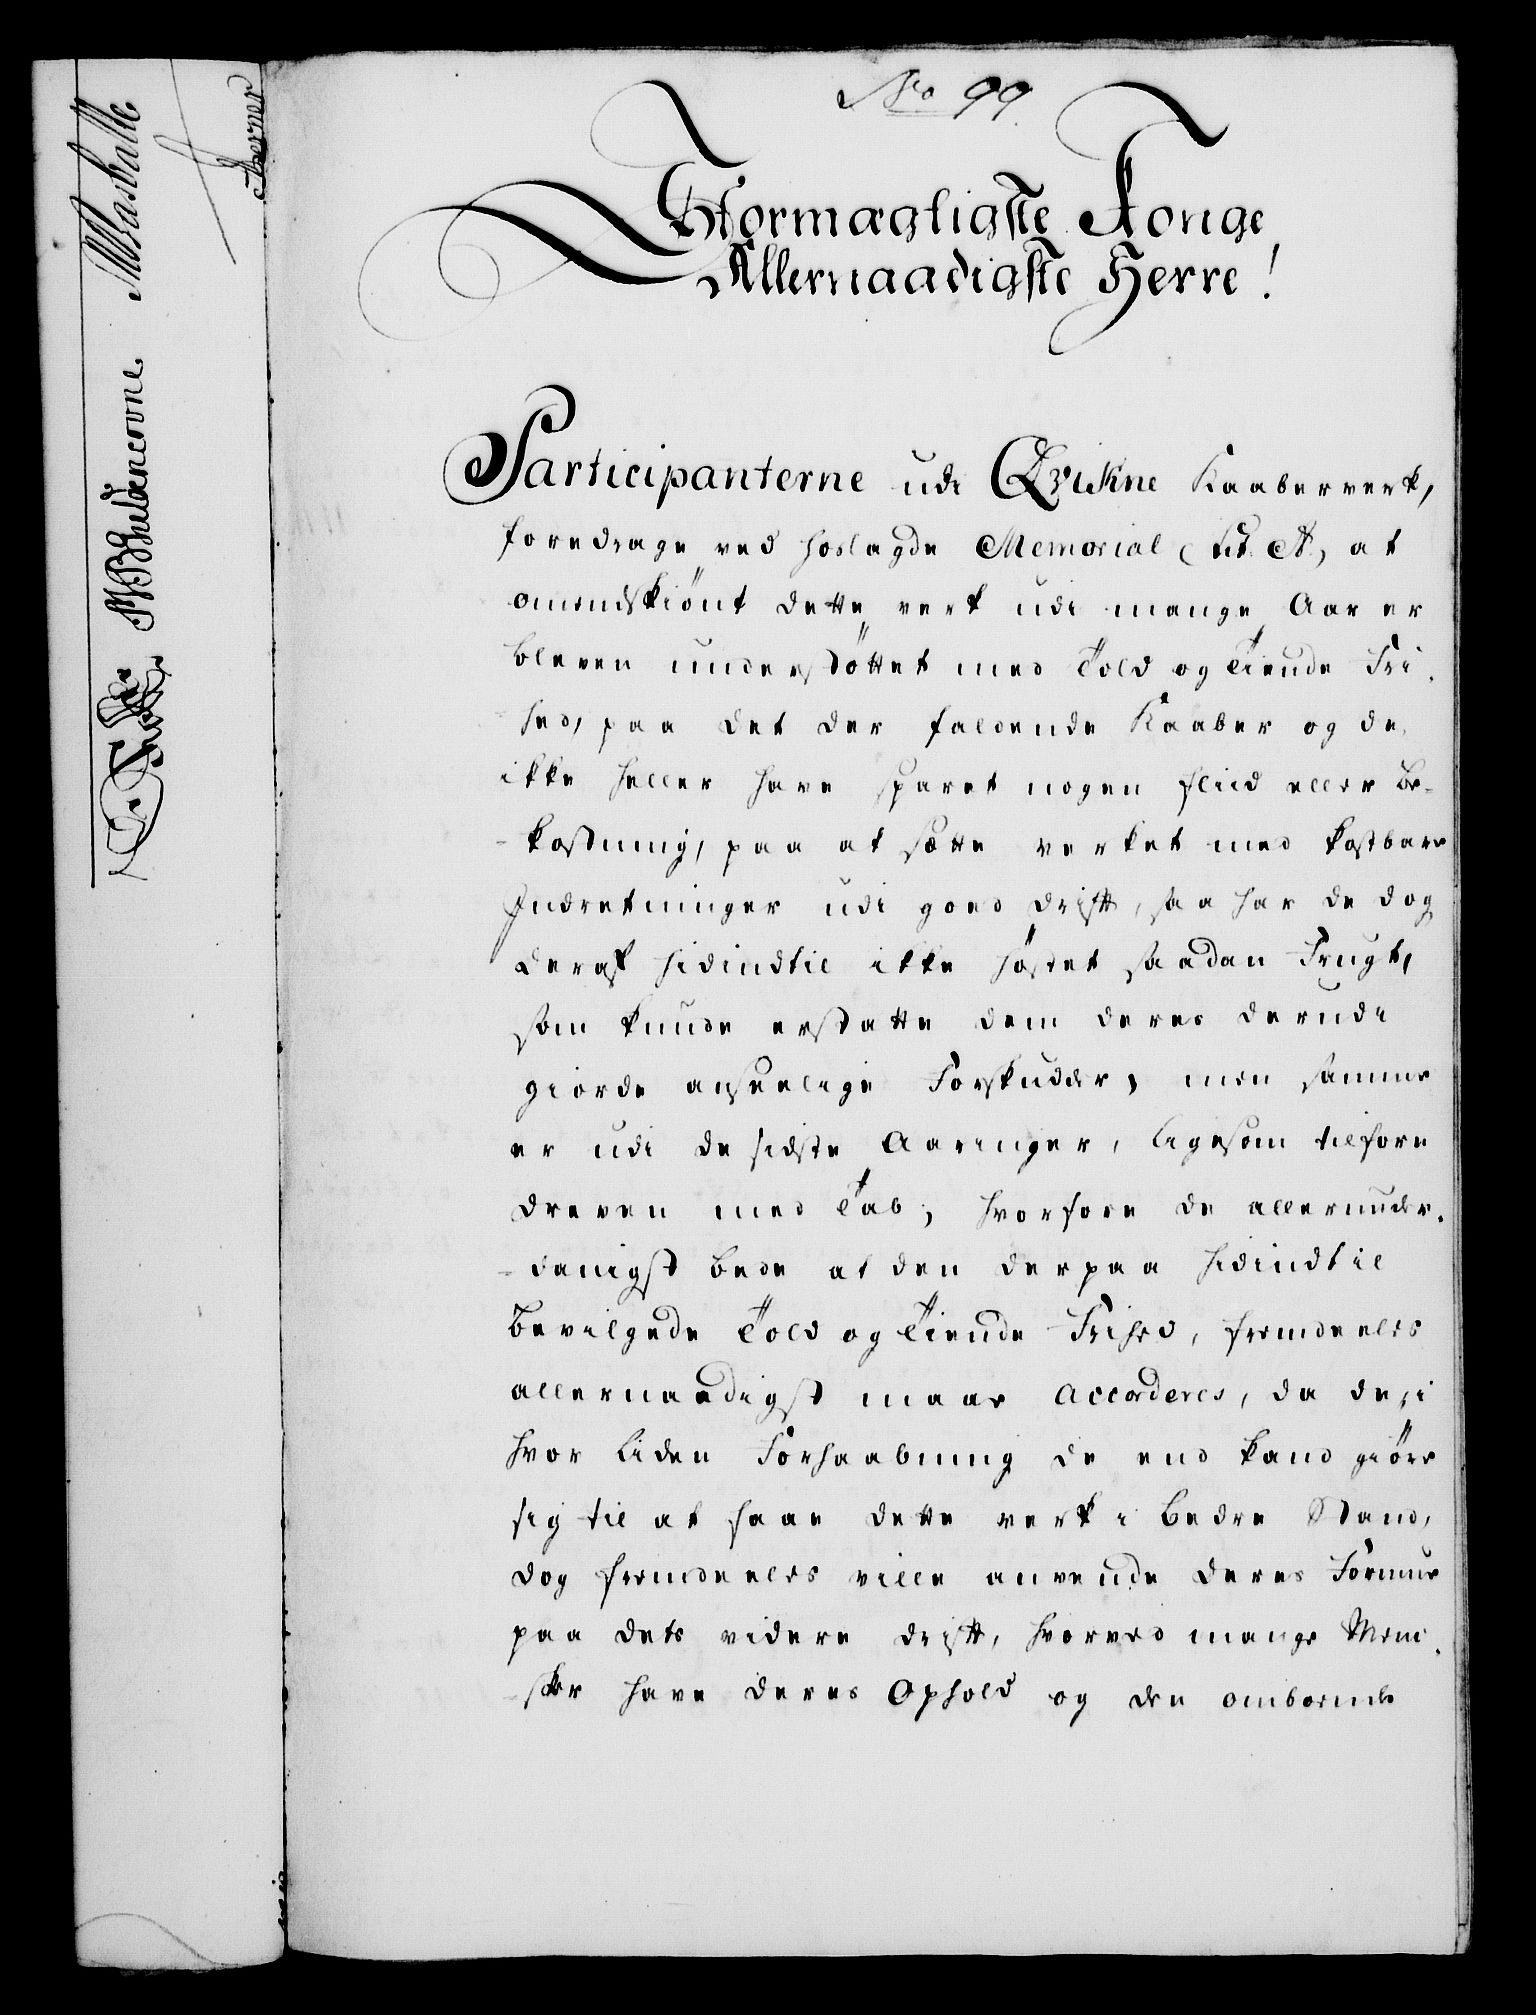 No 99
Stormægtigste Konge
Allernaadigste Herre!
Participanterne udi Qvikne Kaaberverk,
foredrage ved hoslagde Memorial Lit. A, at
omendskiönt dette verk udi mange Aar er
bleven understöttet med Told og Tiende Fri-
-hed, paa det der faldende Kaaber og de
ikke heller have sparet nogen fliid eller Be-
-kostning, paa at sætte verket med kostbare
Indretninger udi goed drift, saa har de dog
deraf hidindtil ikke höstet saadan Frugt,
som kunde erstatte dem deres derudi
giorde anseelige Forskudder, men samme
er udi de sidste Aaringer, ligesom tilforn
dreven med Tab; hvorfore de allerunder-
-danigst bede at den derpaa hidindtil
bevilgede Told og Tiende Frihed, fremdeeles
allernaadigst maae Accorderes, da de, i
hvor liden Forhaabning de end kand giöre
sig til at faae dette verk i bedre Stand,
dog fremdeeles ville anvende deres Formue
paa dets videre drift, hvorved mange Men-
-sker have deres Ophold og den omboende